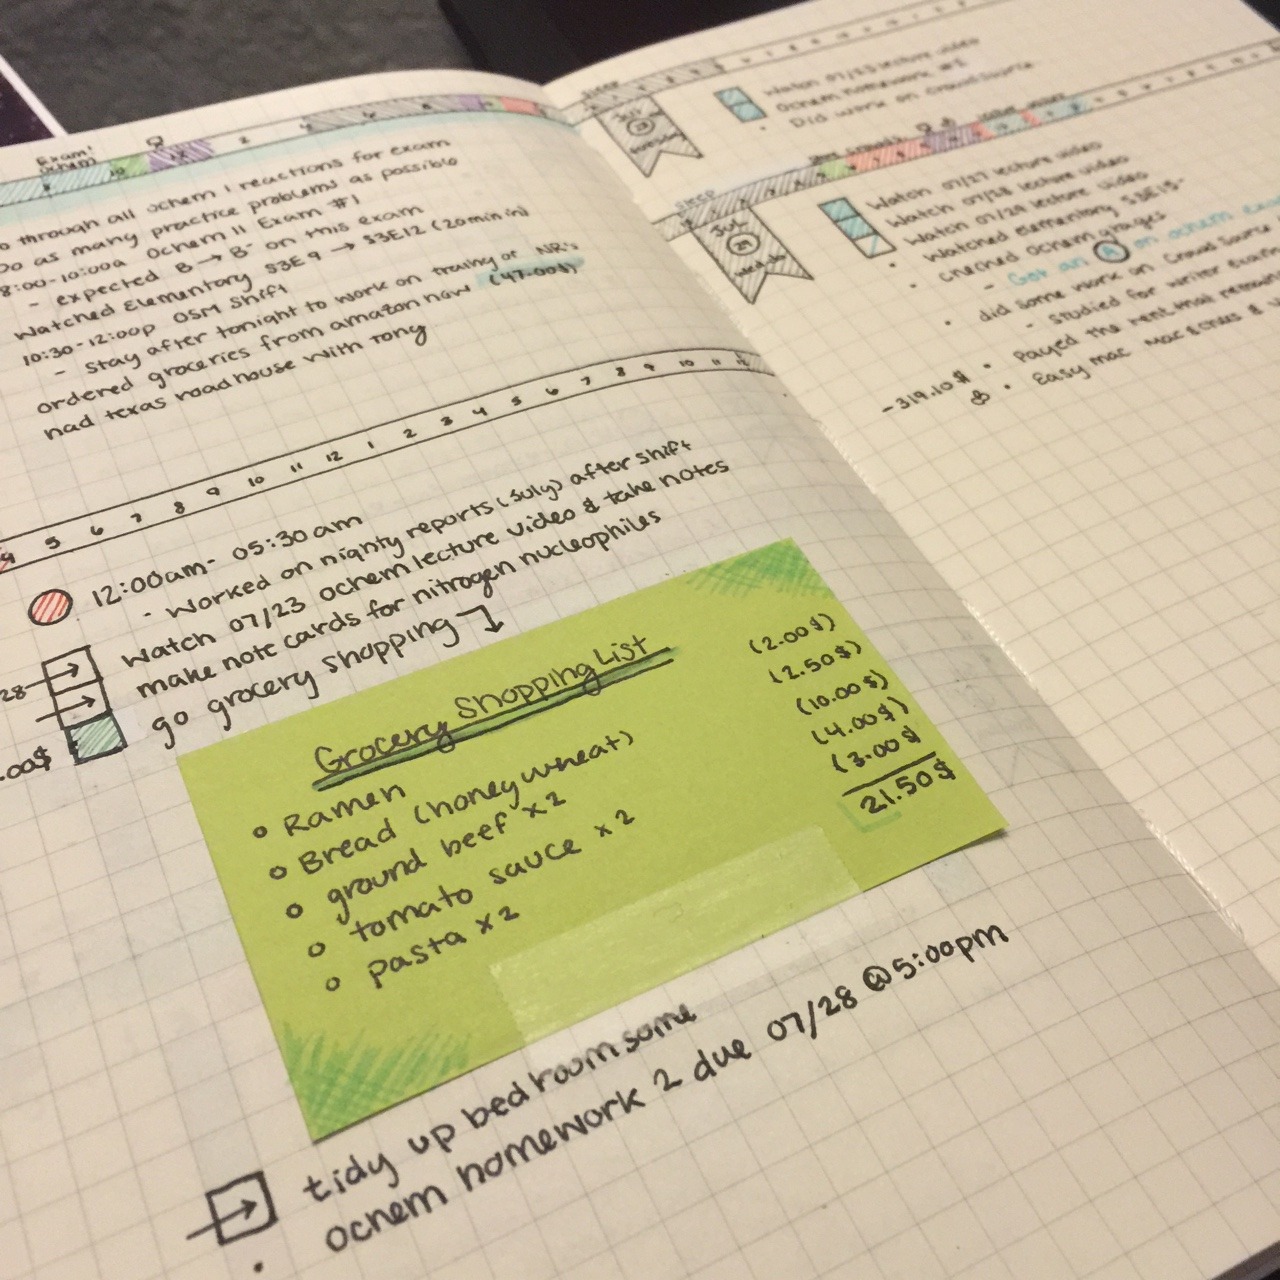 Exam!
Ochem
8 10 12 2 4 6 8
through all ochem 1 reactions for exam
Do as many practice problems as possible
8:00-10:00a Ochem II Exam #1
- expected B → B- on this exam
Watched Elementary S3E9 → S3E12 (20min in)
10:30-12:00p OSM Shift
- Stay after tonight to work on training of NR's
ordered groceries from amazon now (47.00$)
had texas roadhouse with Tony
4 5 6 7 8 9 10 11 12 1 2 3 4 5 6 7 8 9 10 11 12
12:00am- 05:30am
- Worked on nighty reports (July) after shift
Watch 07/23 ochem lecture video & take notes
28 make note cards for nitrogen nucleophiles
.00$ go grocery shopping
Grocery Shopping List
Ramen (2.00$)
Bread (honey wheat) (2.50$)
ground beef x2 (10.00$)
tomato sauce x2 (4.00$)
pasta x2 (3.00$)
21.50$
tidy up bedroom some
ochem homework 2 due 07/28 @ 5:00pm
Sleep
Jul
28
Tuesday
Watch 07/23 lecture video
Ochem homework #2
Did work on CrowdSource
Sleep
Jul
29
Watch 07/27 lecture video
Watch 07/28 lecture video
Watch 07/29 lecture video
Watched elementary S3E15-
checked ochem grades
- Got an A on ochem exam
did some work on Crowd Source
- Studied for writer exam
-319.10$ Payed the rent that
Easy mac Mac & chees &